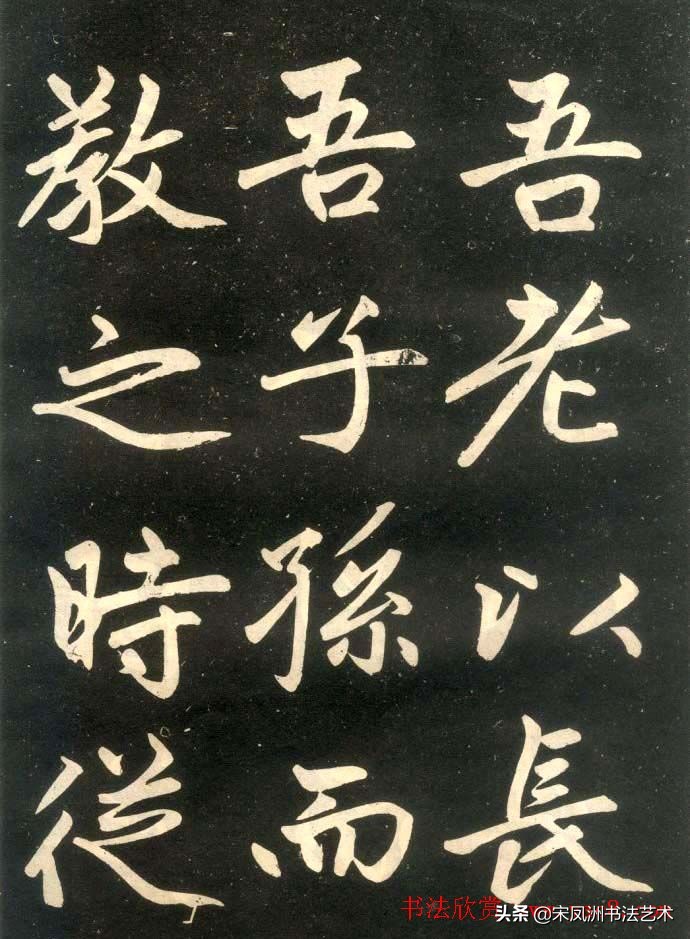 吾老以長
吾子孫而
教之時従
书法欣赏
头条@宋凤洲书法艺术